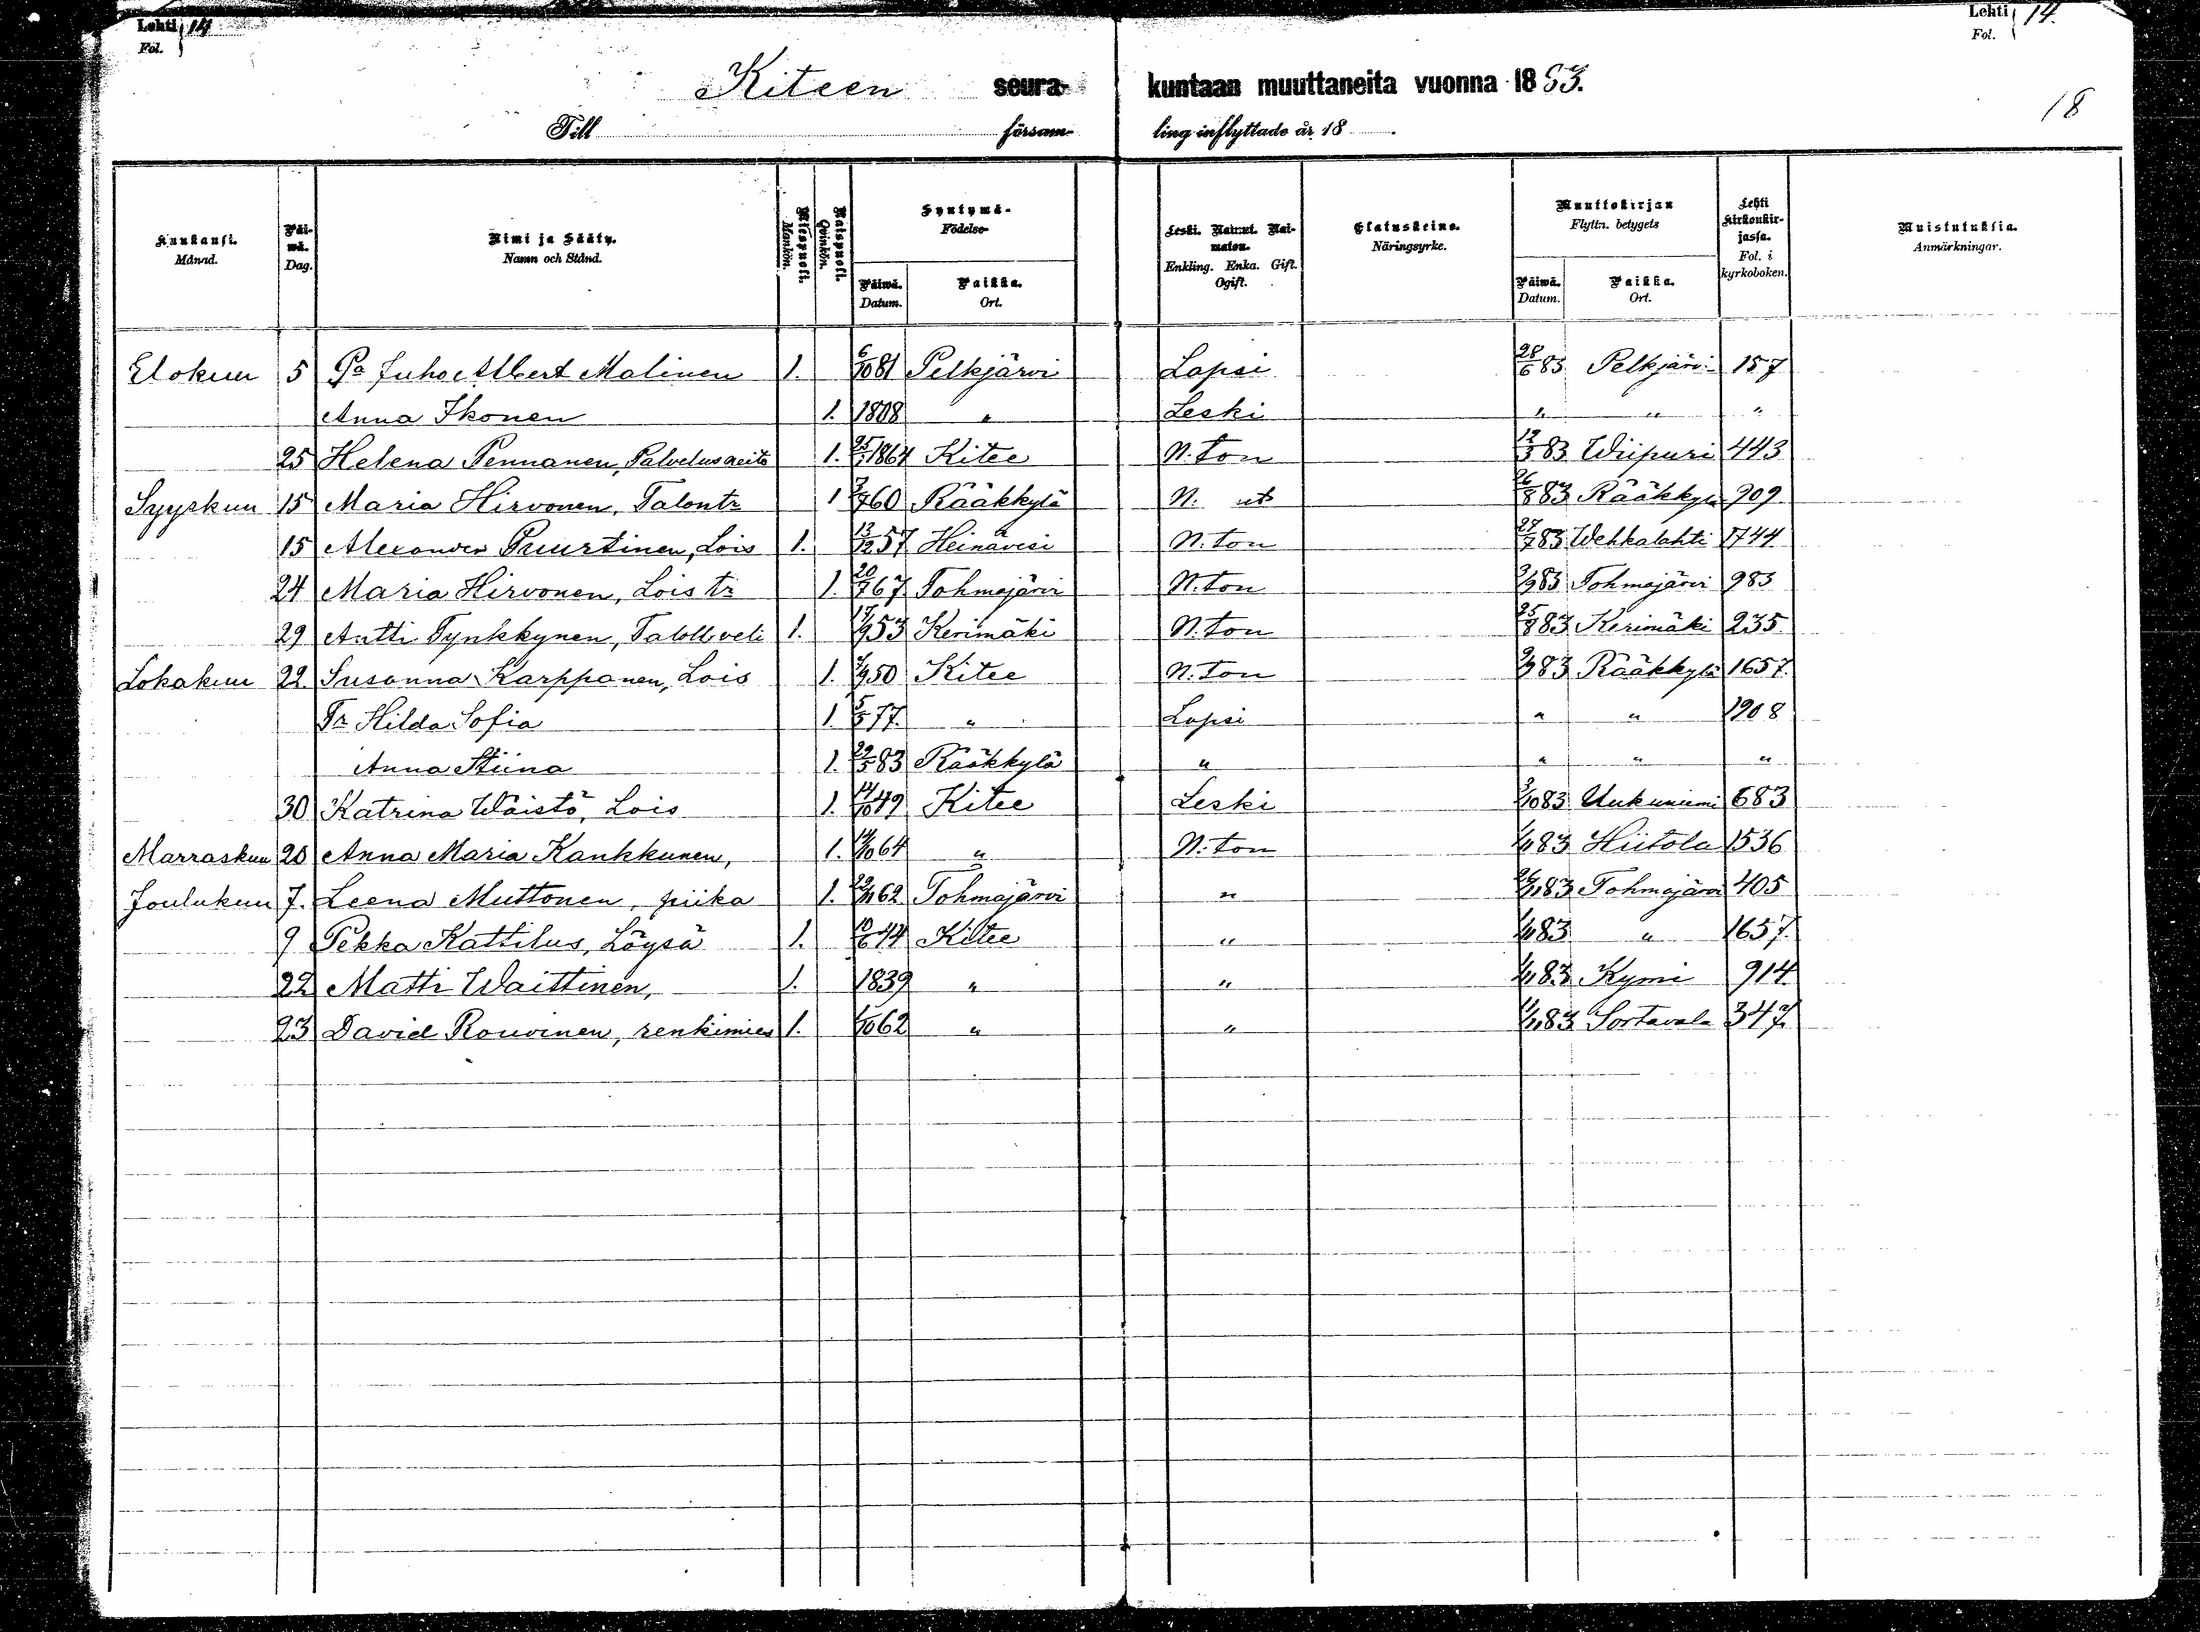 Lehti 14 Lehti 14.
Fol. Fol.
Kiteen seura- kuntaan muuttaneita vuonna 1883.
18
Till församling inflyttade år 18 .
Kuukausi. Månad. Päiwä. Dag. Nimi ja Sääty. Namn och Stånd. Miespuoli. Mankön. Naispuoli. Qvinkön. Syntymä- Födelse- Päiwä. Datum. Paikka. Ort. Leski. Nainut. Naimaton. Enkling. Enka. Gift. Ogift. Elatuskeino. Näringsyrke. Muuttokirjan Flyttn. betygets Päiwä. Datum. Paikka. Ort. Lehti kirkonkirjassa. Fol. i kyrkoboken. Muistutuksia. Anmärkningar.
Elokuu 5 Pa Juho Albert Malinen 1. 6/10 81 Pelkjärvi Lapsi 28/6 83 Pelkjärvi 157
Anna Ikonen 1. 1808 " Leski " " "
25 Helena Pennanen, Palvelusneito 1. 1864 Kitee N:ton 83 Wiipuri 443
Syyskuu 15 Maria Hirvonen, Talontr 1 60 Rääkkylä N. ut 26/8 83 Rääkkylä 909
15 Alexander Puurtinen, Lois 1. 13/12 57 Heinävesi N:ton 27/7 83 Wehkalahti 1744
24 Maria Hirvonen, Lois tr 1. 20/7 67 Tohmajärvi N:ton 3/9 83 Tohmajärvi 983
29 Antti Tynkkynen, Taloll veli 1. 17/9 53 Kerimäki N:ton 25/8 83 Kerimäki 235
Lokakuu 22. Susanna Karppanen, Lois 1. 50 Kitee N:ton 83 Rääkkylä 1657.
Tr Hilda Sofia 1. 77. " Lapsi " " 1908
Anna Stiina 1. 29/5 83 Rääkkylä " " " "
30 Katrina Wäistö, Lois 1. 14/10 49 Kitee Leski 3/10 83 Uukuniemi 683
Marraskuu 20 Anna Maria Kankkunen, 1. 14/10 64 " N:ton 83 Hiitola 1536
Joulukuu 7. Leena Muttonen, piika 1. 62 Tohmajärvi " 83 Tohmajärvi 405
9 Pekka Kattilus, Löysä 1. 10/6 44 Kitee " 83 " 1657.
22 Matti Waittinen, 1. 1839 " " 83 Kymi 914.
23 David Rouvinen, renkimies 1. 62 " " 83 Sortavala 347.